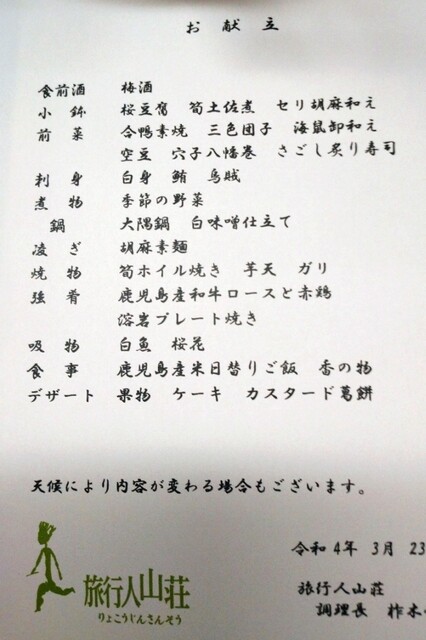 お献立
食前酒 梅酒
小鉢 桜豆富 筍土佐煮 セリ胡麻和え
前菜 合鴨素焼 三色団子 海鼠卸和え
空豆 穴子八幡巻 さごし炙り寿司
刺身 白身 鮪 烏賊
煮物 季節の野菜
鍋 大隅鍋 白味噌仕立て
凌ぎ 胡麻素麺
焼物 筍ホイル焼き 芋天 ガリ
強肴 鹿児島産和牛ロースと赤鶏
溶岩プレート焼き
吸物 白魚 桜花
食事 鹿児島産米日替りご飯 香の物
デザート 果物 ケーキ カスタード葛餅
天候により内容が変わる場合もございます。
令和4年 3月 23
旅行人山荘
調理長 柞木
旅行人山荘
りょこうじんさんそう